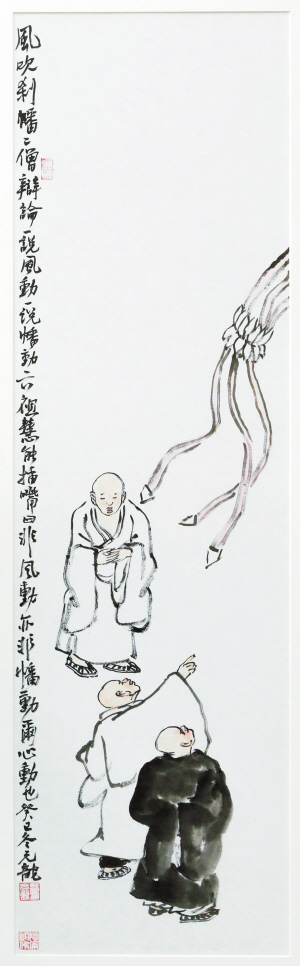 風吹刹幡二僧辯論一説風動一説幡動六祖慧能插嘴曰非風動亦非幡動爾心動也癸巳冬元龍